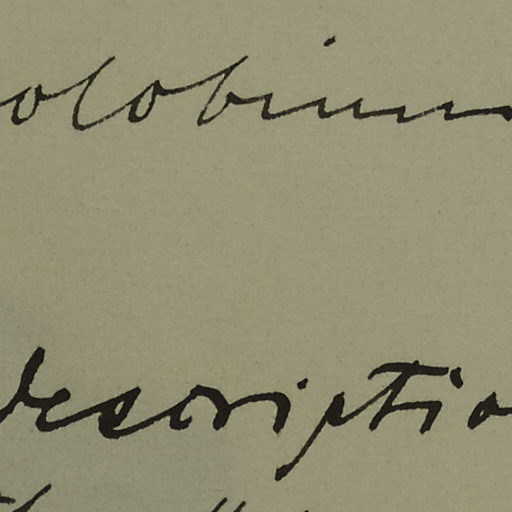 olobium
descriptio